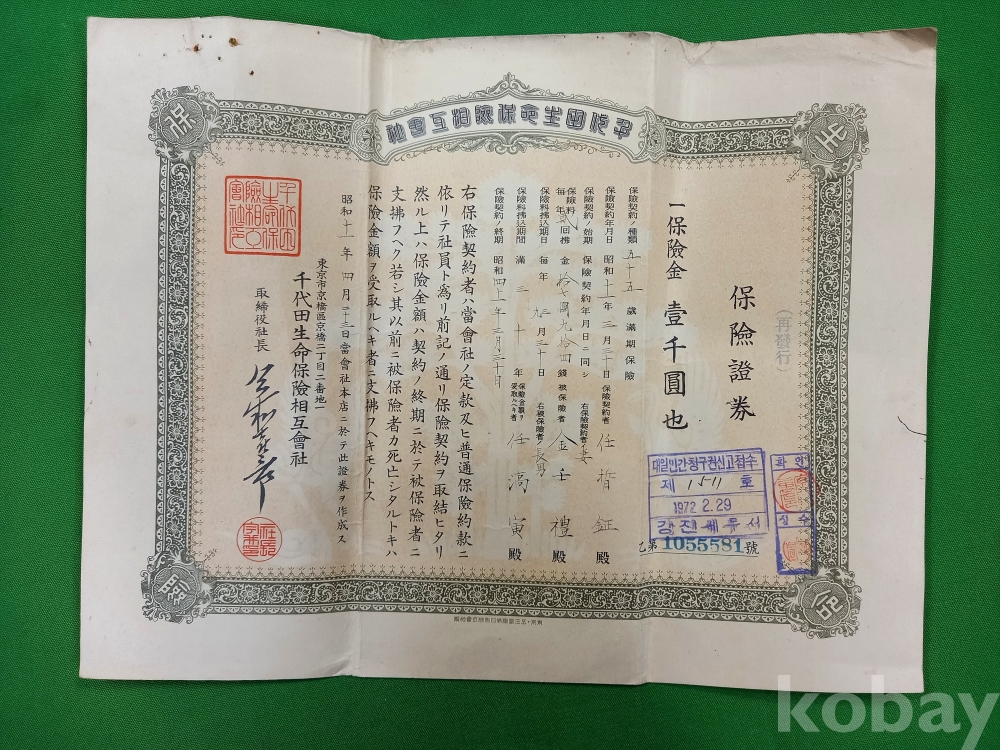 千代田生命保險相互會社
生
命
保
險
(再發行)
保險證券
一保險金 壹千圓也
保險契約ノ種類 五十五歲滿期保險
保險契約年月日 昭和十一年三月三十日
保險契約ノ始期 保險契約年月日ニ同シ
保險料 每年 貳回拂 金拾七圓九拾四錢
保險料拂込期日 每年 九三月三十日
保險料拂込期間 滿三十年
保險契約ノ終期 昭和四十一年三月三十日
保險契約者 任哲鉦殿
右保險契約者ノ妻
被保險者 金壬禮殿
右被保險者ノ長男
保險金額ヲ受取ルヘキ者 任滈寅殿
右保險契約者ハ當會社ノ定款及ヒ普通保險約款ニ
依リテ社員ト爲リ前記ノ通リ保險契約ヲ取結ヒタリ
然ル上ハ保險金額ハ契約ノ終期ニ於テ被保險者ニ
支拂フヘク若シ其以前ニ被保險者カ死亡シタルトキハ
保險金額ヲ受取ルヘキ者ニ支拂フヘキモノトス
昭和十一年四月二十三日當會社本店ニ於テ此證券ヲ作成ス
東京市京橋區京橋二丁目二番地一
千代田生命保險相互會社
取締役社長
千代田生命保險相互會社印
대일민간청구권신고접수
제 1511 호
1972.2.29
강진세무서
확인
乙第1055581號
kobay